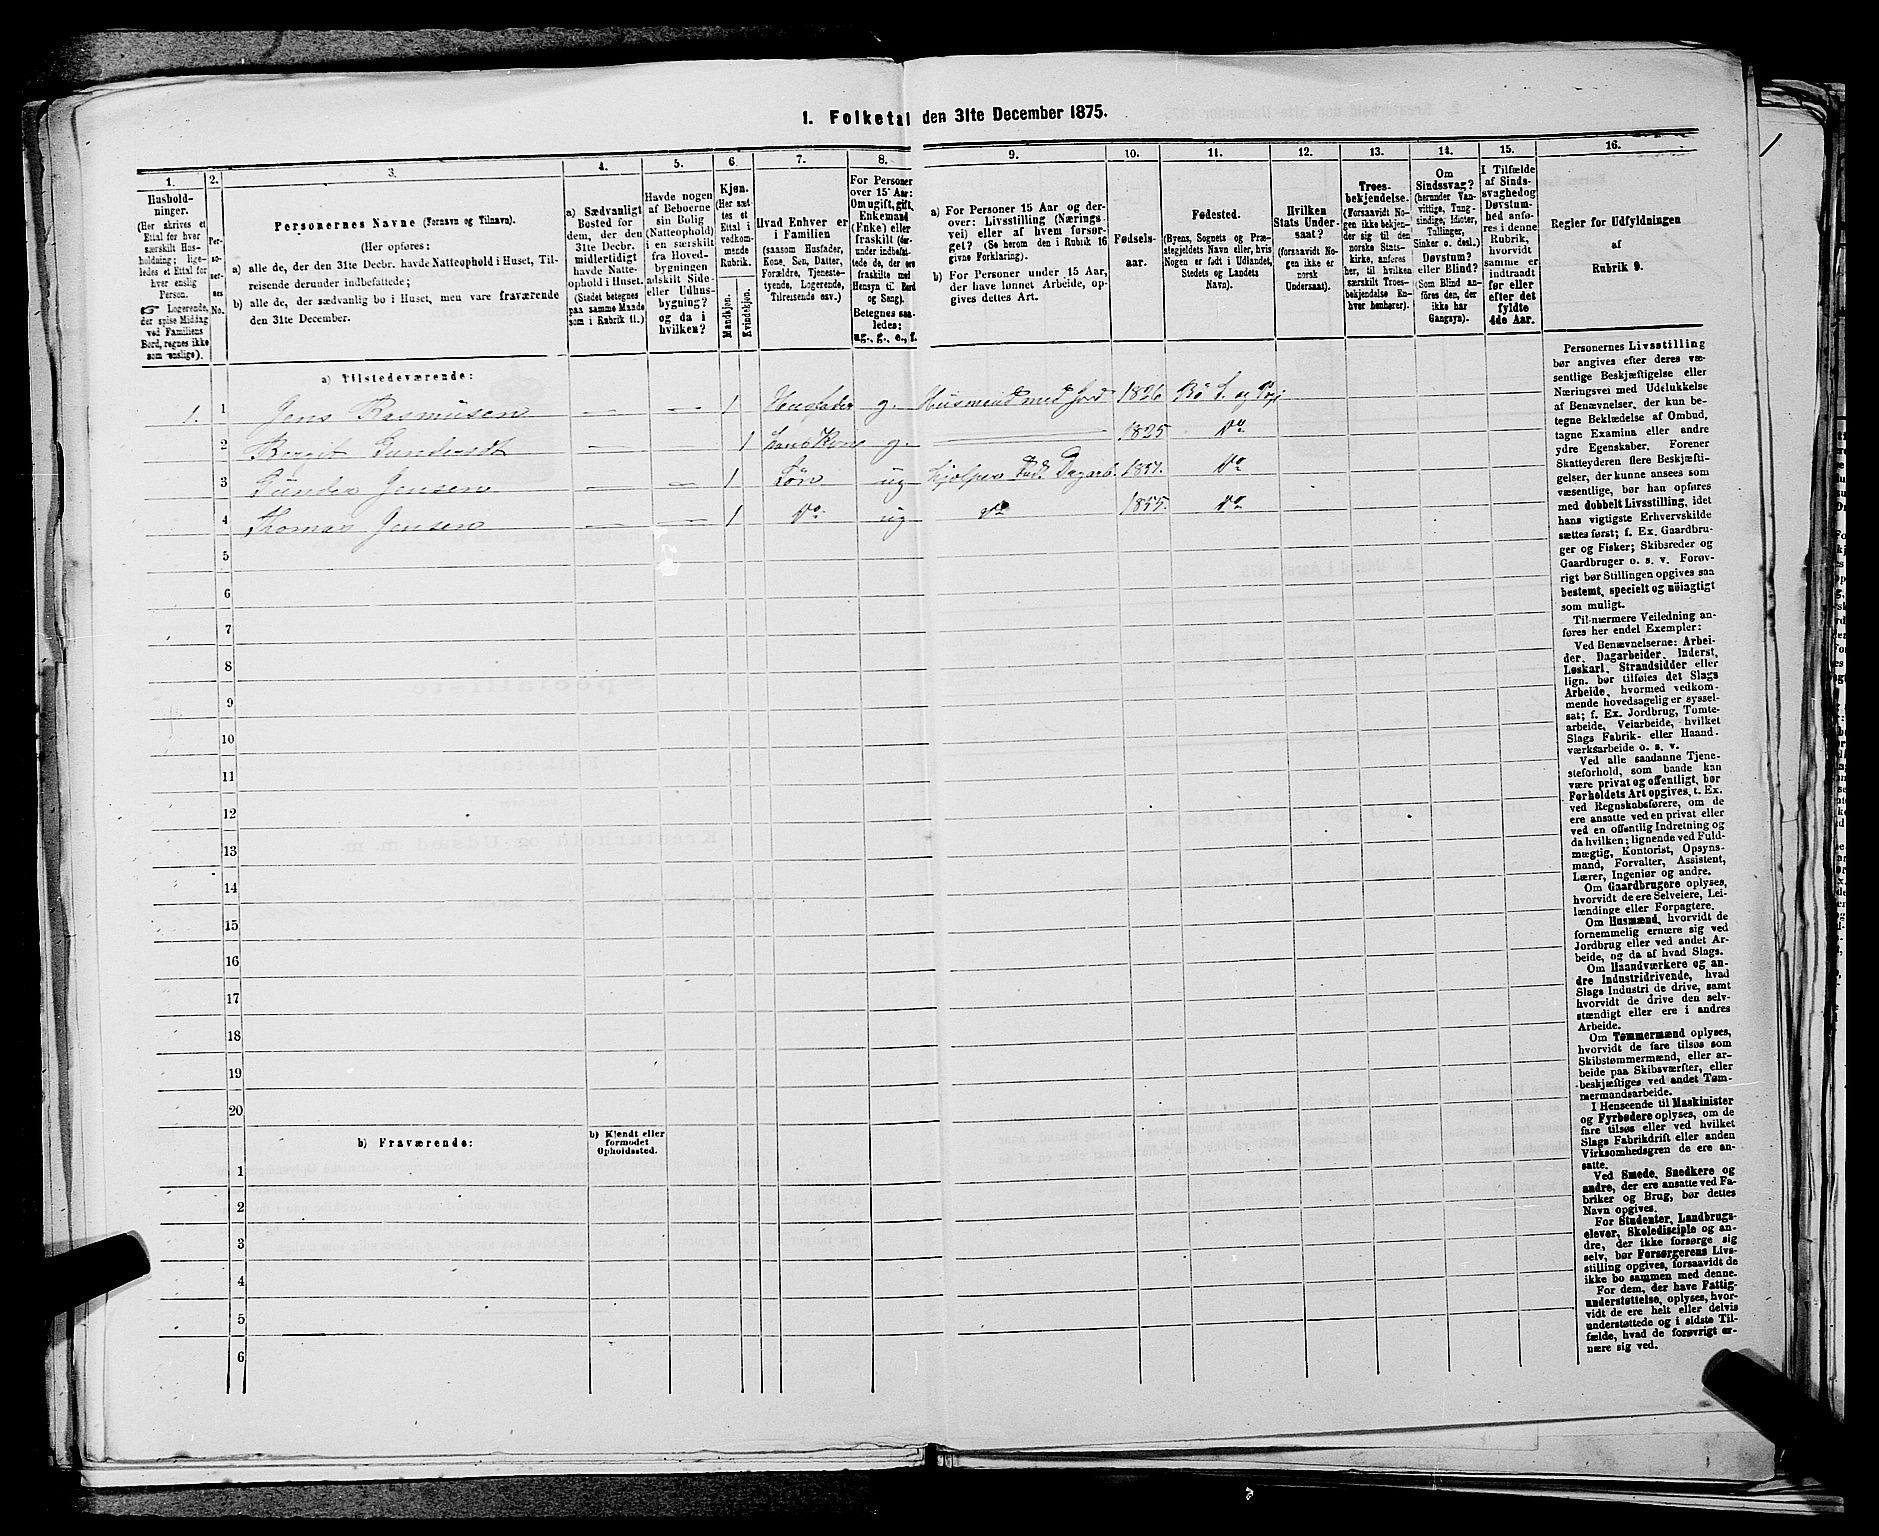 1. Folketal den 31te December 1875.
1. 2. 3. 4. 5. 6. 7. 8. 9. 10. 11. 12. 13. 14. 15. 16.
Husholdninger.
(Her skrives et
Ettal for hver
særskilt Hus-
holdning; lige-
ledes et Ettal for
hver enslig
Person.
☞ Logerende,
der spise Middag
ved Familiens
Bord, regnes ikke
som enslige).
Per-
so-
ner-
nes
No.
Personernes Navne (Fornavn og Tilnavn).
(Her opføres:
a) alle de, der den 31te Decbr. havde Natteophold i Huset, Til-
reisende derunder indbefattede;
b) alle de, der sædvanlig bo i Huset, men vare fraværende
den 31te December.
a) Sædvanligt
Bosted for
dem, der den
31te Decbr.
midlertidigt
havde Natte-
ophold i Huset.
(Stedet betegnes
paa samme Maade
som i Rubrik 11.)
Havde nogen
af Beboerne
sin Bolig
(Natteophold)
i en særskilt
fra Hoved-
bygningen
adskilt Side-
eller Udhus-
bygning?
og da i
hvilken?
Kjøn.
(Her sæt-
tes et
Ettal i
vedkom-
mende
Rubrik.
Mandkjøn.
Kvindekjøn.
Hvad Enhver er
i Familien
(saasom Husfader,
Kone, Søn, Datter,
Forældre, Tjeneste-
tyende, Logerende,
Tilreisende osv.)
For Personer
over 15 Aar:
Om ugift, gift,
Enkemand
(Enke) eller
fraskilt (der-
under indbefat-
tede de, der ere
fraskilte med
Hensyn til Bord
og Seng).
Betegnes saa-
ledes:
ug., g., e., f.
a) For Personer 15 Aar og der-
over: Livsstilling (Nærings-
vei) eller af hvem forsør-
get? (Se herom den i Rubrik 16
givne Forklaring).
b) For Personer under 15 Aar,
der have lønnet Arbeide, op-
gives dettes Art.
Fødsels-
aar.
Fødested.
(Byens, Sognets og Præ-
stegjeldets Navn eller, hvis
Nogen er født i Udlandet,
Stedets og Landets
Navn).
Hvilken
Stats Under-
saat?
(forsaavidt No-
gen ikke er
norsk
Undersaat).
Troes-
bekjendelse.
(Forsaavidt No-
gen ikke bekjen-
der sig til den
norske Stats-
kirke, anføres
her, til hvilken
særskilt Troes-
bekjendelse En-
hver henhører).
Om
Sindssvag?
(herunder Van-
vittige, Tung-
sindige, Idioter,
Tullinger,
Sinker o. desl.)
Døvstum?
eller Blind?
(Som Blind an-
føres den, der
ikke har
Gangsyn).
I Tilfælde
af Sinds-
svaghed og
Døvstum-
hed anfø-
res i denne
Rubrik,
hvorvidt
samme er
indtraadt
før eller
efter det
fyldte
4de Aar.
Regler for Udfyldningen
af
Rubrik 9.
a) Tilstedeværende:
1. 1 Jens Rasmusen — — 1 Husfader g. Husmand med Jord 1826 Bö S. og Prgj
2 Bergit Gundersdt — — 1 hans Kone g. — 1825 Do
3 Gunder Jensen — — 1 Sön ug Hjelper Fad. Dagarb. 1851. Do
4 Thomas Jensen — — 1 Do ug Do 1855. Do
5
6
7
8
9
10
11
12
13
14
15
16
17
18
19
20
b) Fraværende:
b) Kjendt eller
formodet
Opholdssted.
1
2
3
4
5
6
Personernes Livsstilling
bør angives efter deres væ-
sentlige Beskjæftigelse eller
Næringsvei med Udelukkelse
af Benævnelser, der kun be-
tegne Beklædelse af Ombud,
tagne Examina eller andre
ydre Egenskaber. Forener
Skatteyderen flere Beskjæfti-
gelser, der kunne ansees som
væsentlige, bør han opføres
med dobbelt Livsstilling, idet
hans vigtigste Erhvervskilde
sættes først; f. Ex. Gaardbru-
ger og Fisker; Skibsreder og
Gaardbruger o. s. v. Forøv-
rigt bør Stillingen opgives saa
bestemt, specielt og nøiagtigt
som muligt.
Til nærmere Veiledning an-
føres her endel Exempler:
Ved Benævnelserne: Arbei-
der, Dagarbeider, Inderst,
Løskarl, Strandsidder eller
lign. bør tilføies det Slags
Arbeide, hvormed vedkom-
mende hovedsagelig er syssel-
sat; f. Ex. Jordbrug, Tomte-
arbeide, Veiarbeide, hvilket
Slags Fabrik- eller Haand-
værksarbeide o. s. v.
Ved alle saadanne Tjene-
steforhold, som baade kan
være privat og offentligt, bør
Forholdets Art opgives, t. Ex.
ved Regnskabsførere, om de
ere ansatte ved en privat eller
ved en offentlig Indretning og
da hvilken; lignende ved Fuld-
mægtig, Kontorist, Opsyns-
mand, Forvalter, Assistent,
Lærer, Ingeniør og andre.
Om Gaardbrugere oplyses,
hvorvidt de ere Selveiere, Lei-
lændinge eller Forpagtere.
Om Husmænd, hvorvidt de
fornemmelig ernære sig ved
Jordbrug eller ved andet Ar-
beide, og da af hvad Slags.
Om Haandværkere og an-
dre Industridrivende, hvad
Slags Industri de drive, samt
hvorvidt de drive den selv-
stændigt eller ere i andres
Arbeide.
Om Tømmermænd oplyses,
hvorvidt de fare tilsøs som
Skibstømmermænd, eller ar-
beide paa Skibsværfter, eller
beskjæftiges ved andet Tøm-
mermandsarbeide.
I Henseende til Maskinister
og Fyrbødere oplyses, om de
fare tilsøs eller ved hvilket
Slags Fabrikdrift eller anden
Virksomhedsgren de ere an-
satte.
Ved Smede, Snedkere og
andre, der ere ansatte ved Fa-
briker og Brug, bør dettes
Navn opgives.
For Studenter, Landbrugs-
elever, Skoledisciple og an-
dre, der ikke forsørge sig
selv, bør Forsørgerens Livs-
stilling opgives, forsaavidt de
ikke bo sammen med denne.
For dem, der have Fattig-
understøttelse, oplyses, hvor-
vidt de ere helt eller delvis
understøttede og i sidste Til-
fælde, hvad de forøvrigt er-
nære sig ved.